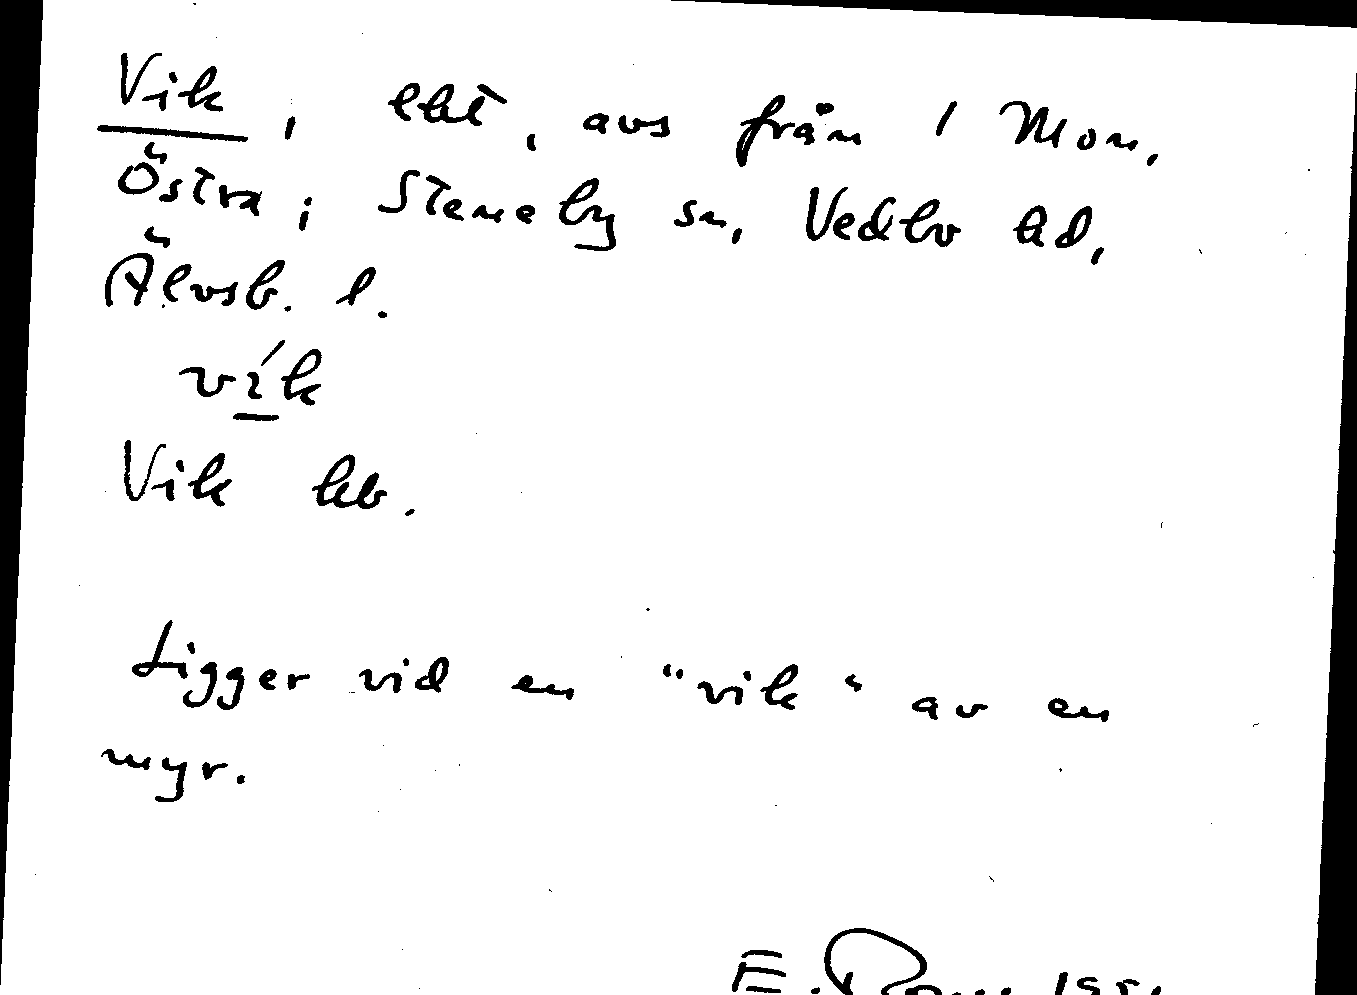 Vik, lht, avs från 1 Mon,
Östra; Steneby sn, Vedbo hd,
Älvsb. l.
vík
Vik kb.
Ligger vid en "vik" av en
myr.
E.